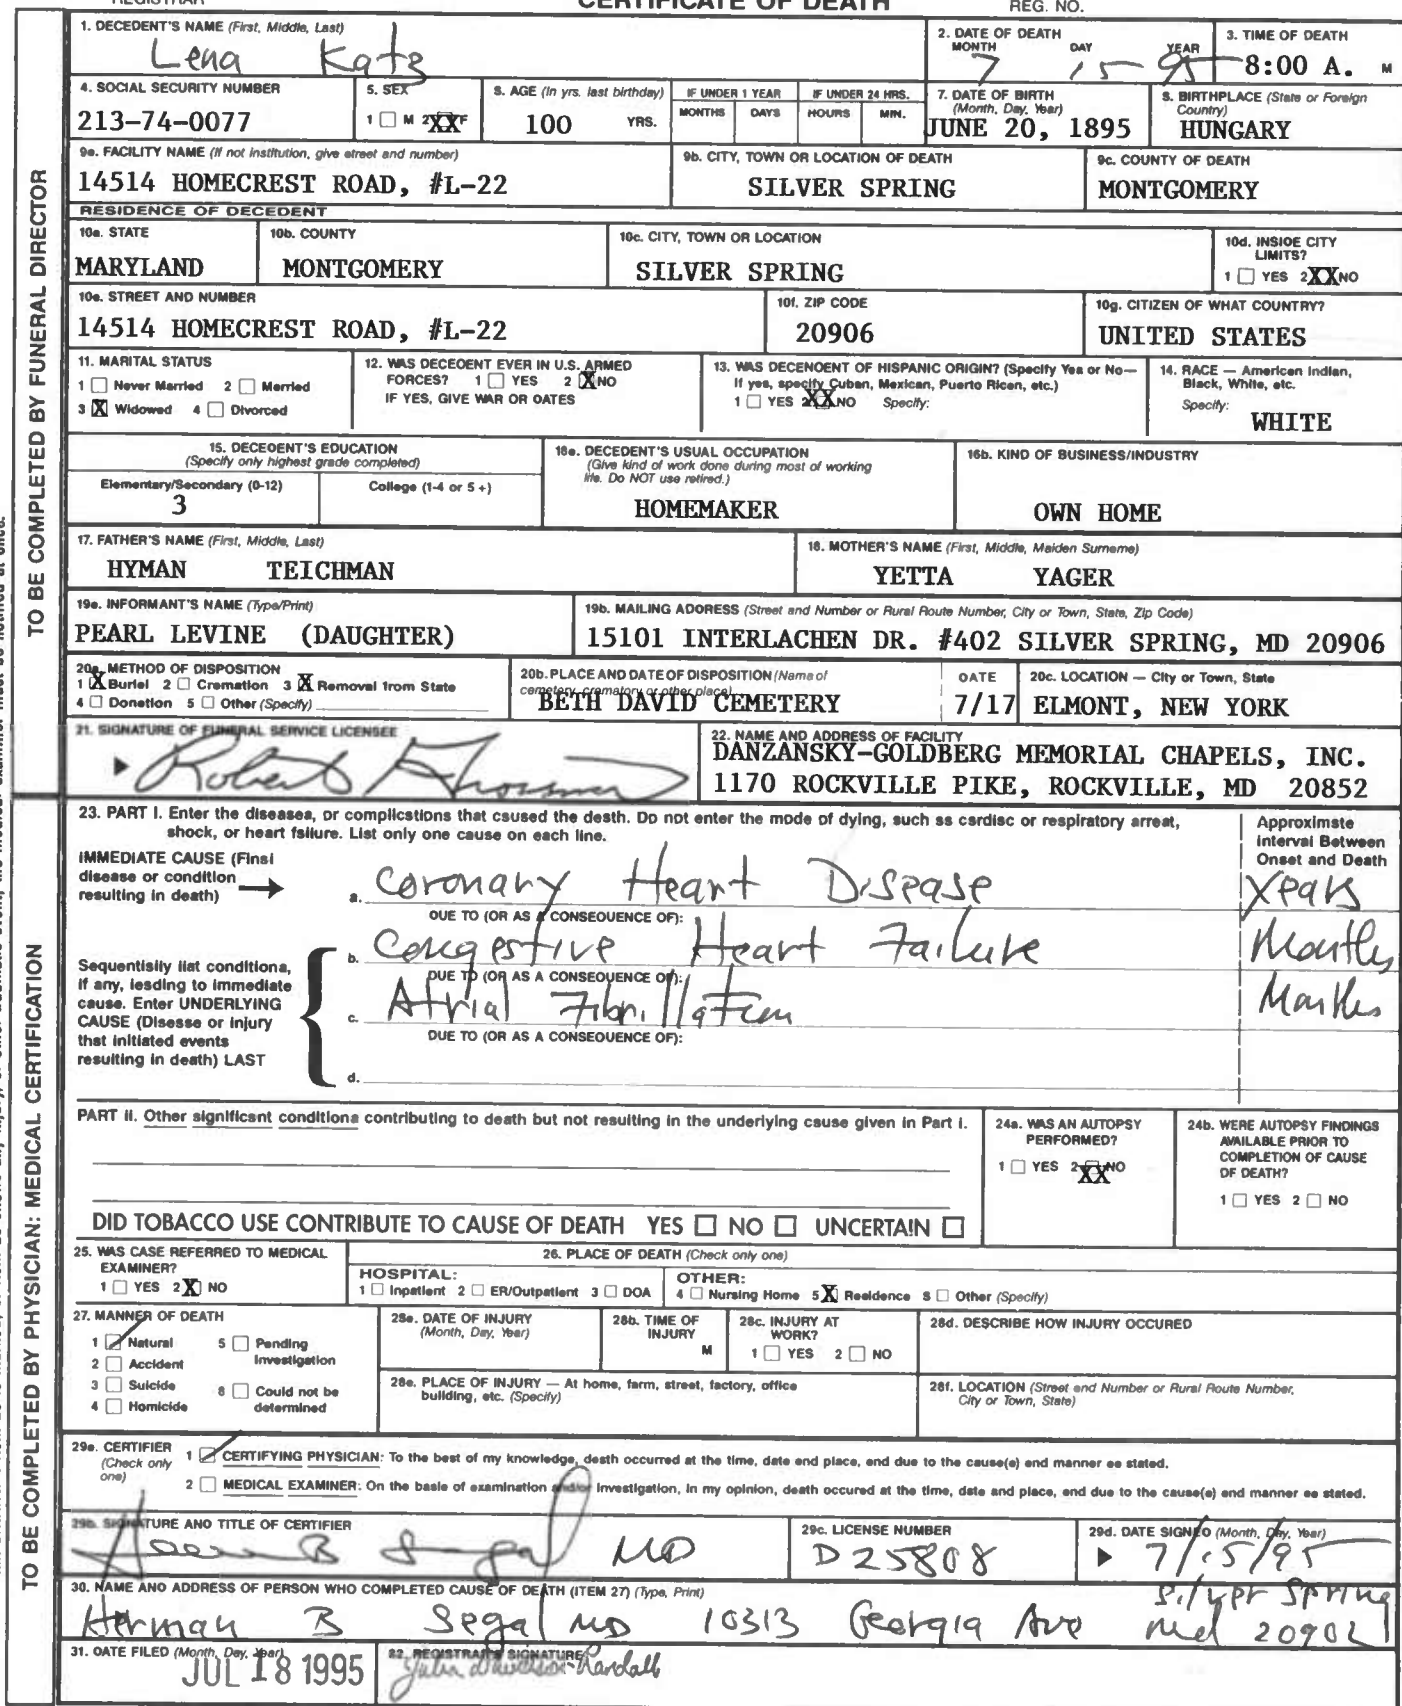 CERTIFICATE OF DEATH
REG. NO.
1. DECEDENT'S NAME (First, Middle, Last)
Lena Katz
2. DATE OF DEATH
MONTH DAY YEAR
7 15 95
3. TIME OF DEATH
8:00 A. M
4. SOCIAL SECURITY NUMBER
213-74-0077
5. SEX
1 ☐ M 2 XX F
8. AGE (In yrs. last birthday)
100 YRS.
IF UNDER 1 YEAR
MONTHS DAYS
IF UNDER 24 HRS.
HOURS MIN.
7. DATE OF BIRTH
(Month, Day, Year)
JUNE 20, 1895
8. BIRTHPLACE (State or Foreign
Country)
HUNGARY
9a. FACILITY NAME (If not institution, give street and number)
14514 HOMECREST ROAD, #L-22
9b. CITY, TOWN OR LOCATION OF DEATH
SILVER SPRING
9c. COUNTY OF DEATH
MONTGOMERY
RESIDENCE OF DECEDENT
10a. STATE
MARYLAND
10b. COUNTY
MONTGOMERY
10c. CITY, TOWN OR LOCATION
SILVER SPRING
10d. INSIDE CITY
LIMITS?
1 ☐ YES 2 XX NO
10e. STREET AND NUMBER
14514 HOMECREST ROAD, #L-22
10f. ZIP CODE
20906
10g. CITIZEN OF WHAT COUNTRY?
UNITED STATES
11. MARITAL STATUS
1 ☐ Never Married 2 ☐ Married
3 X Widowed 4 ☐ Divorced
12. WAS DECEDENT EVER IN U.S. ARMED
FORCES? 1 ☐ YES 2 X NO
IF YES, GIVE WAR OR DATES
13. WAS DECENDENT OF HISPANIC ORIGIN? (Specify Yes or No—
If yes, specify Cuban, Mexican, Puerto Rican, etc.)
1 ☐ YES 2 XX NO Specify:
14. RACE — American Indian,
Black, White, etc.
Specify:
WHITE
15. DECEDENT'S EDUCATION
(Specify only highest grade completed)
Elementary/Secondary (0-12) College (1-4 or 5 +)
3
16a. DECEDENT'S USUAL OCCUPATION
(Give kind of work done during most of working
life. Do NOT use retired.)
HOMEMAKER
16b. KIND OF BUSINESS/INDUSTRY
OWN HOME
17. FATHER'S NAME (First, Middle, Last)
HYMAN TEICHMAN
18. MOTHER'S NAME (First, Middle, Maiden Surname)
YETTA YAGER
19a. INFORMANT'S NAME (Type/Print)
PEARL LEVINE (DAUGHTER)
19b. MAILING ADDRESS (Street and Number or Rural Route Number, City or Town, State, Zip Code)
15101 INTERLACHEN DR. #402 SILVER SPRING, MD 20906
20a. METHOD OF DISPOSITION
1 X Burial 2 ☐ Cremation 3 X Removal from State
4 ☐ Donation 5 ☐ Other (Specify)
20b. PLACE AND DATE OF DISPOSITION (Name of
cemetery, crematory or other place)
BETH DAVID CEMETERY
DATE
7/17
20c. LOCATION — City or Town, State
ELMONT, NEW YORK
21. SIGNATURE OF FUNERAL SERVICE LICENSEE
Robert
22. NAME AND ADDRESS OF FACILITY
DANZANSKY-GOLDBERG MEMORIAL CHAPELS, INC.
1170 ROCKVILLE PIKE, ROCKVILLE, MD 20852
TO BE COMPLETED BY FUNERAL DIRECTOR
23. PART I. Enter the diseases, or complications that caused the death. Do not enter the mode of dying, such as cardiac or respiratory arrest,
shock, or heart failure. List only one cause on each line.
Approximate
Interval Between
Onset and Death
IMMEDIATE CAUSE (Final
disease or condition
resulting in death)
a. Coronary Heart Disease Years
DUE TO (OR AS A CONSEQUENCE OF):
b. Congestive Heart Failure Months
DUE TO (OR AS A CONSEQUENCE OF):
c. Atrial Fibrillation Months
DUE TO (OR AS A CONSEQUENCE OF):
d.
Sequentially list conditions,
if any, leading to immediate
cause. Enter UNDERLYING
CAUSE (Disease or injury
that initiated events
resulting in death) LAST
PART II. Other significant conditions contributing to death but not resulting in the underlying cause given in Part I.
24a. WAS AN AUTOPSY
PERFORMED?
1 ☐ YES 2 XX NO
24b. WERE AUTOPSY FINDINGS
AVAILABLE PRIOR TO
COMPLETION OF CAUSE
OF DEATH?
1 ☐ YES 2 ☐ NO
DID TOBACCO USE CONTRIBUTE TO CAUSE OF DEATH YES ☐ NO ☐ UNCERTAIN ☐
25. WAS CASE REFERRED TO MEDICAL
EXAMINER?
1 ☐ YES 2 X NO
26. PLACE OF DEATH (Check only one)
HOSPITAL:
1 ☐ Inpatient 2 ☐ ER/Outpatient 3 ☐ DOA
OTHER:
4 ☐ Nursing Home 5 X Residence 6 ☐ Other (Specify)
27. MANNER OF DEATH
1 ☑ Natural 5 ☐ Pending
Investigation
2 ☐ Accident
3 ☐ Suicide 6 ☐ Could not be
determined
4 ☐ Homicide
28a. DATE OF INJURY
(Month, Day, Year)
28b. TIME OF
INJURY
M
28c. INJURY AT
WORK?
1 ☐ YES 2 ☐ NO
28d. DESCRIBE HOW INJURY OCCURED
28e. PLACE OF INJURY — At home, farm, street, factory, office
building, etc. (Specify)
28f. LOCATION (Street and Number or Rural Route Number,
City or Town, State)
29a. CERTIFIER
(Check only
one)
1 ☑ CERTIFYING PHYSICIAN: To the best of my knowledge, death occurred at the time, date and place, and due to the cause(s) and manner as stated.
2 ☐ MEDICAL EXAMINER: On the basis of examination and/or investigation, in my opinion, death occured at the time, date and place, and due to the cause(s) and manner as stated.
29b. SIGNATURE AND TITLE OF CERTIFIER
Herman B Segal MD
29c. LICENSE NUMBER
D25808
29d. DATE SIGNED (Month, Day, Year)
7/15/95
30. NAME AND ADDRESS OF PERSON WHO COMPLETED CAUSE OF DEATH (ITEM 27) (Type, Print)
Herman B Segal MD 10313 Georgia Ave Silver Spring
Md 20902
31. DATE FILED (Month, Day, Year)
JUL 18 1995
32. REGISTRAR'S SIGNATURE
Julia Davidson-Randall
TO BE COMPLETED BY PHYSICIAN: MEDICAL CERTIFICATION